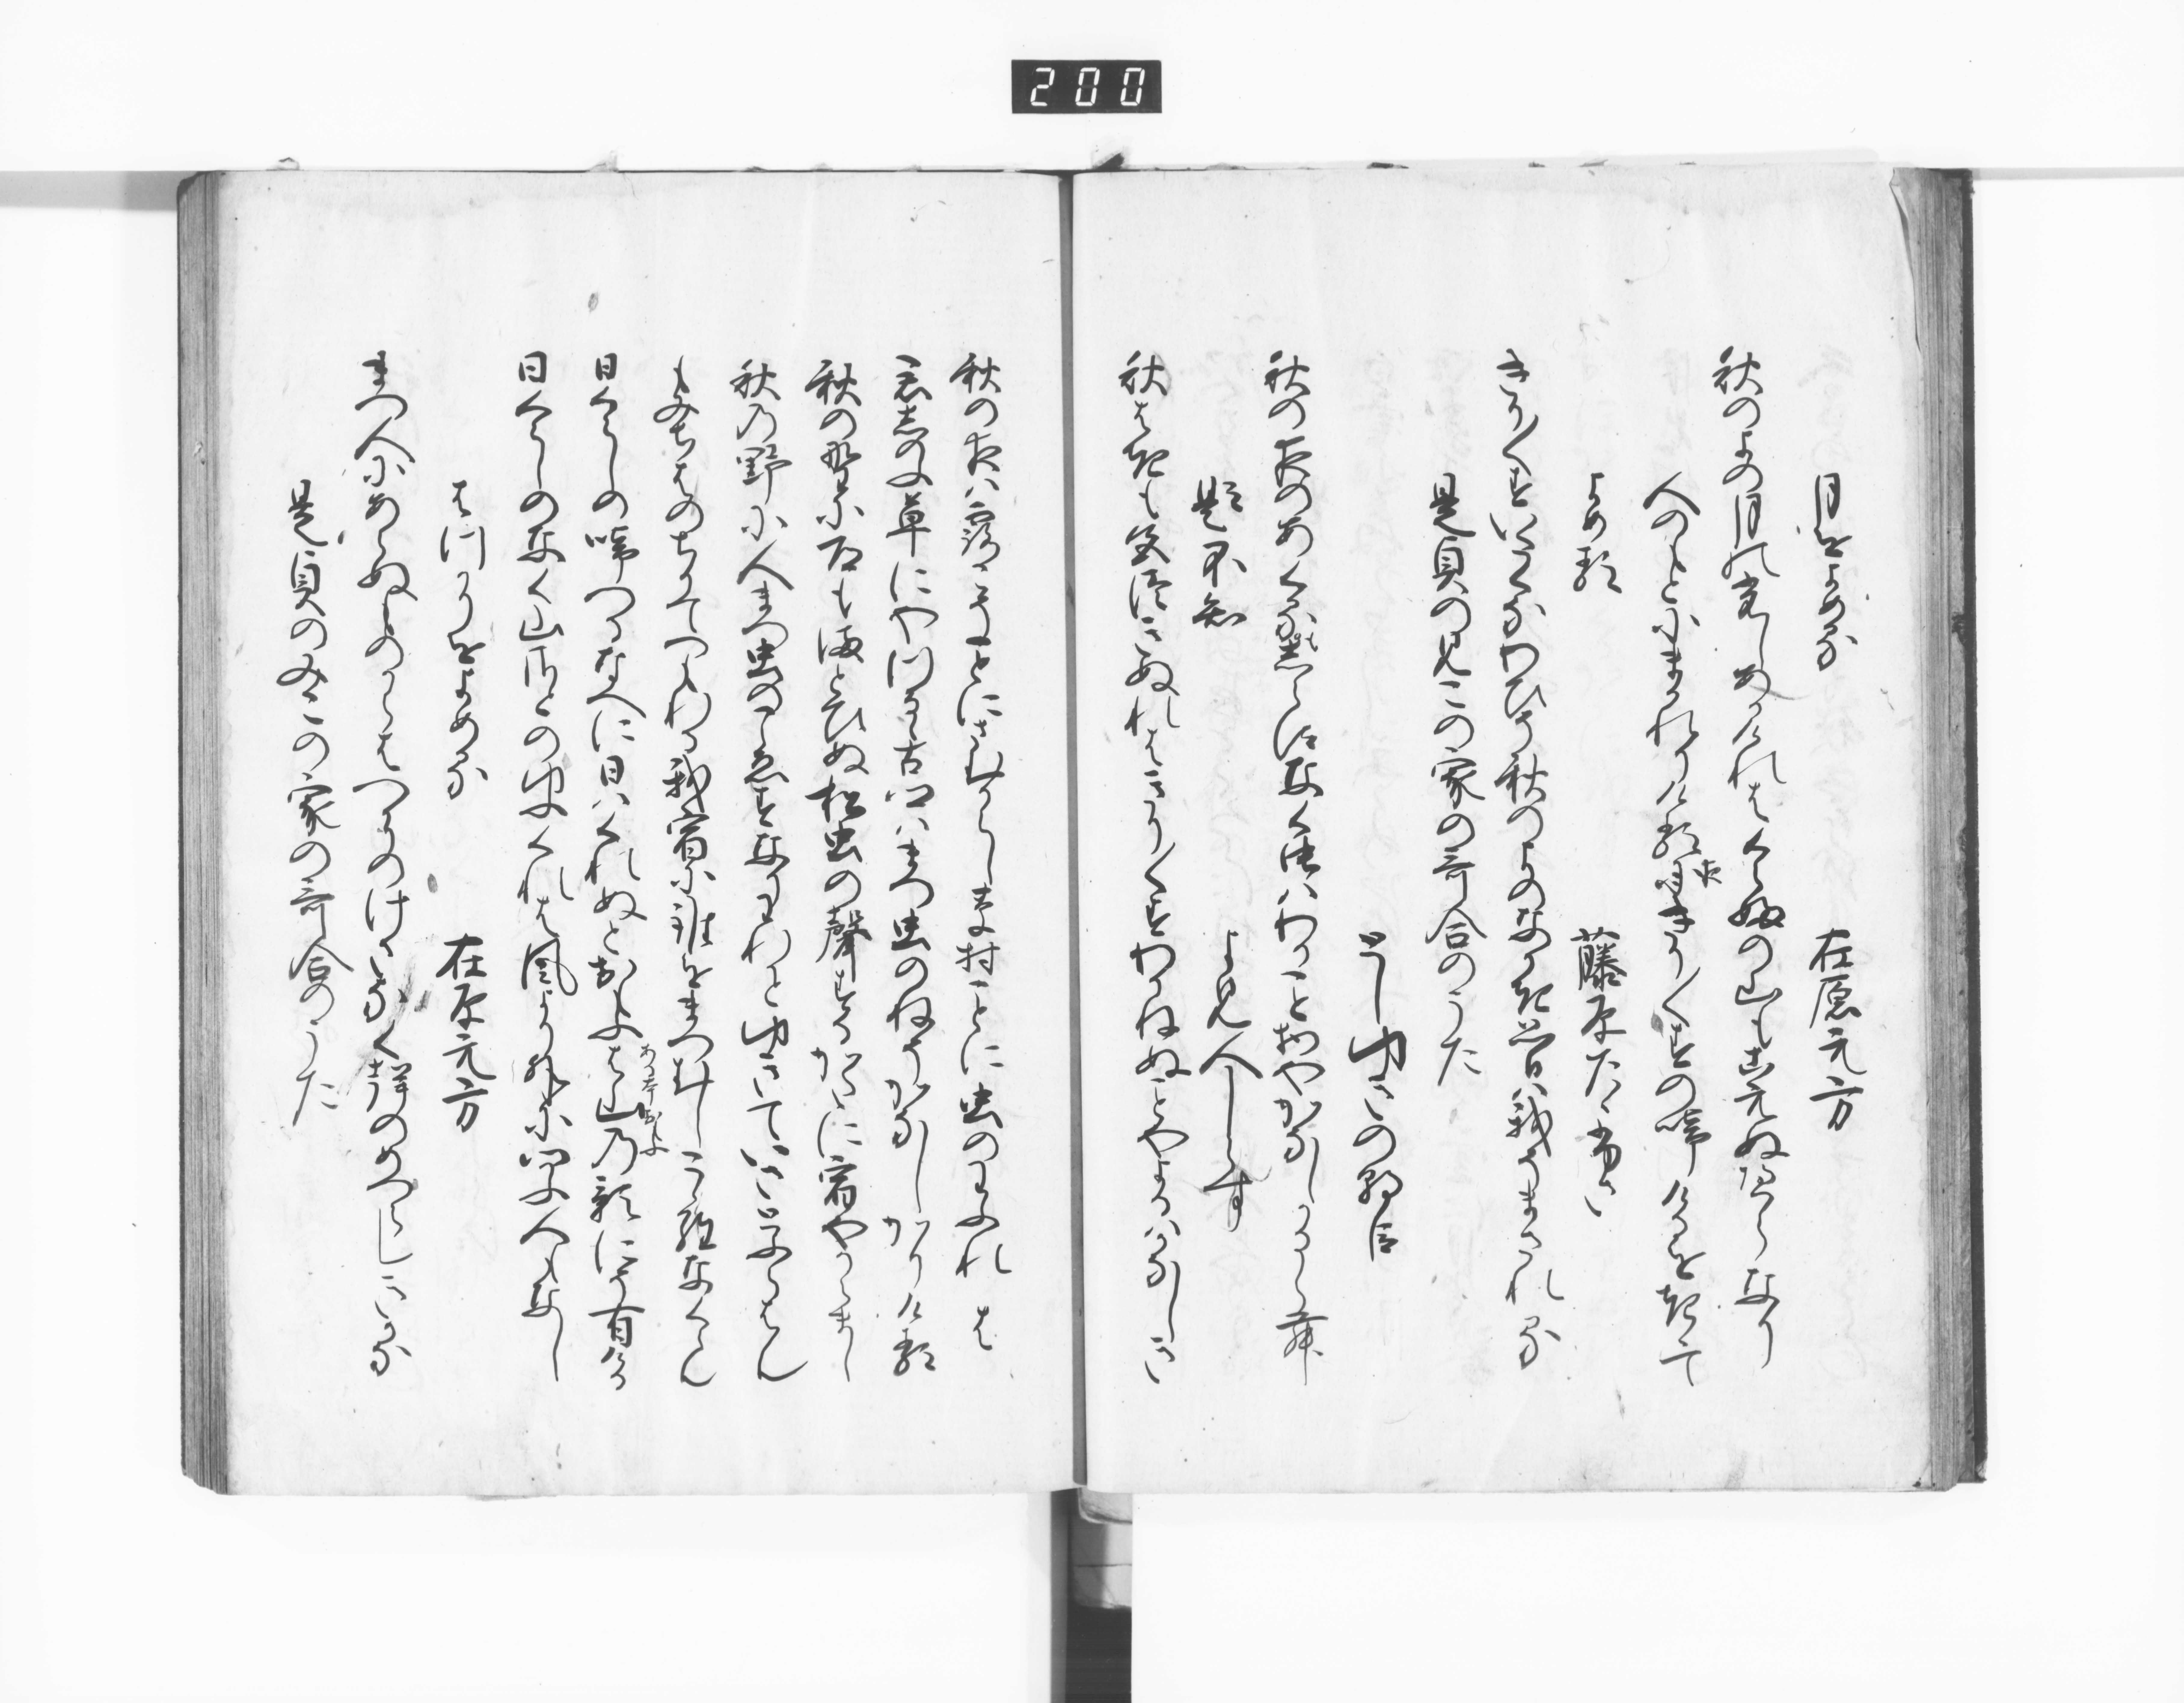 200
月をよめる　在原元方
秋のよの月の光しあかけれはくらふの山もこえぬへらなり
人のもとにまかれりける夜きり〳〵すの啼けるを聞て
よめる　藤原たゝふさ
きり〳〵すいたくなゝきそ秋のよのなかき思ひは我そまされる
是貞のみこの家の哥合のうた
としゆきの朝臣
秋の夜のあくるもしらすなく虫はわかこと物やかなしかるらむ
題不知　よみ人しらす
秋はきも色付ぬれはきり〳〵すわかねぬことやよるはかなしき
秋の夜は露こそことにさむからし草村ことに虫のわふれは
君しのふ草にやつるゝ古郷はまつ虫のねそかなしかりける
秋の野に道もまとひぬ松虫の聲するかたに宿やからまし
秋乃野に人まつ虫のこゑすなりわれかとゆきていさとふらはん
もみちはのちりてつもれる我宿に誰をまつむしこゝら鳴らん
日くらしの啼つるなへに日はくれぬとおもふは山乃影にそ有ける
日くらしのなく山里のゆふくれは風よりほかに問人もなし
はつかりをよめる　在原元方
まつ人にあらぬものからはつかりのけさなく聲のめつらしきかな
是貞のみこの家の哥合のうた